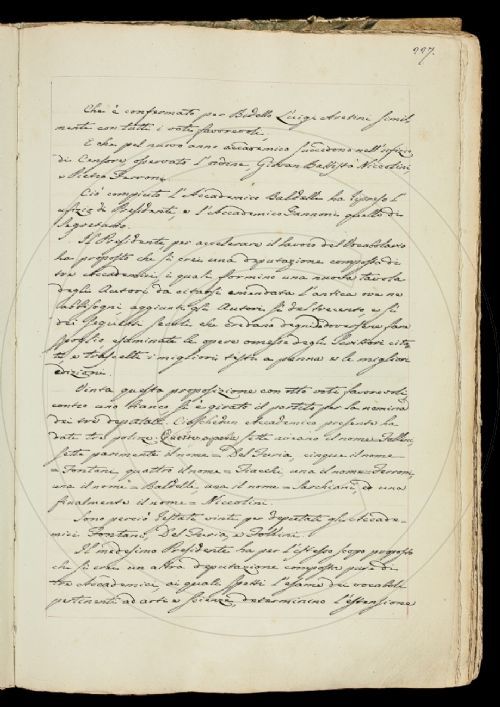 227.
Che è confermato per Bidello Luigi Avetini simil-
mente con tutti i voti favorevoli,
E che pel nuovo anno accademico succedono nell'ufizio
di Censore, osservato l'ordine, Giovan Battista Niccolini
e Pietro Ferroni.
Ciò compiuto l'Accademico Baldelli ha ripreso l'
ufizio di Presidente, e l'Accademico Zannoni quello di
Segretario.
Il Presidente, per accelerare il lavoro del Vocabolario
ha proposto che si crei una deputazione composta di
tre Accademici, i quali formino una nuova tavola
degli Autori da citarsi emendata l'antica ove ne
abbisogni, aggiunti gli Autori sì del trecento e sì
dei seguenti secoli che credano degni doversene fare
spoglio, esaminate le opere omesse degli Scrittori cita-
ti, e trascelti i migliori testi a penna e le migliori
edizioni.
Vinta questa proposizione con otto voti favorevoli
contro uno bianco si è girato il partito per la nomina
dei tre deputati. Ciascheduno Accademico presente ha
date tre polizze. sette aveano il nome = Follini,
sette parimente il nome = Del Furia, cinque il nome
= Fontani, quattro il nome = Fiacchi, una il nome = Ferroni,
una il nome = Baldelli, una il nome = Sarchiani, ed una
finalmente il nome = Niccolini.
Sono perciò restati vinti per deputati gli Accade-
mici Fontani, Del Furia, e Follini.
Il medesimo Presidente ha per l'istesso scopo proposto
che si crei un altra deputazione composta pure di
tre Accademici, ai quali spetti l'esame dei vocaboli
pertinenti ad arti e scienze, determinino l'estensione